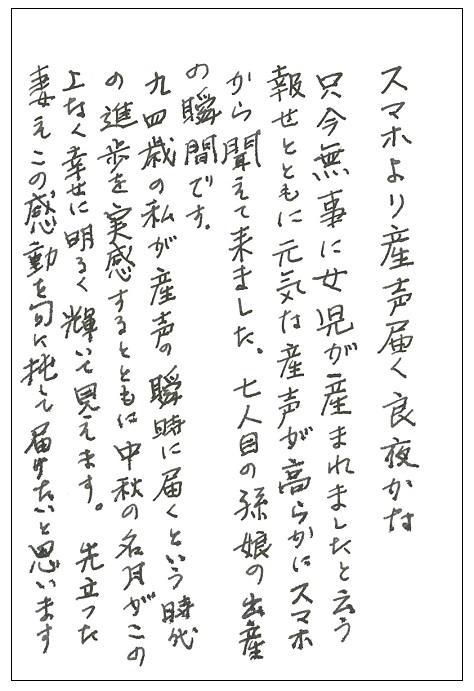 スマホより産声届く良夜かな
只今無事に女児が産まれましたと云う
報せとともに元気な産声が高らかにスマホ
から聞えて来ました。七人目の孫娘の出産
の瞬間です。
九四歳の私が産声の瞬時に届くという時代
の進歩を実感するとともに中秋の名月がこの
上なく幸せに明るく輝いて見えます。先立った
妻えこの感動を句に托して届けたいと思います